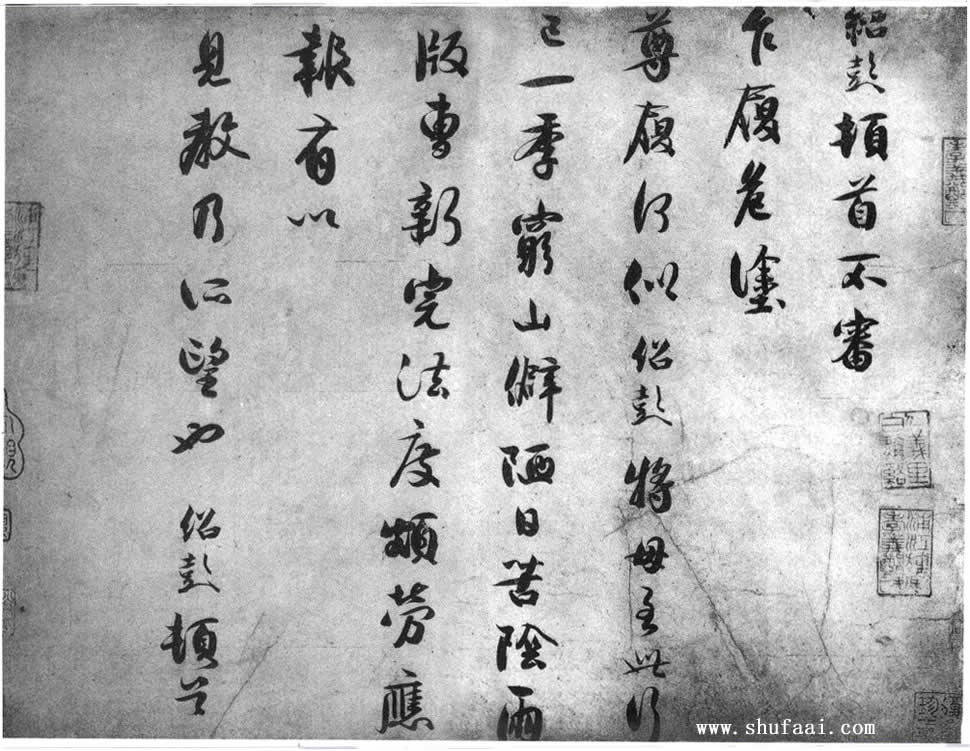 紹彭頓首不審
乍履危塗
尊履何似紹彭將毋至此行
已一季窮山僻陋日苦陰雨
版曹新完法度頗勞應
報有以
見教乃所望也紹彭頓首
www.shufaai.com